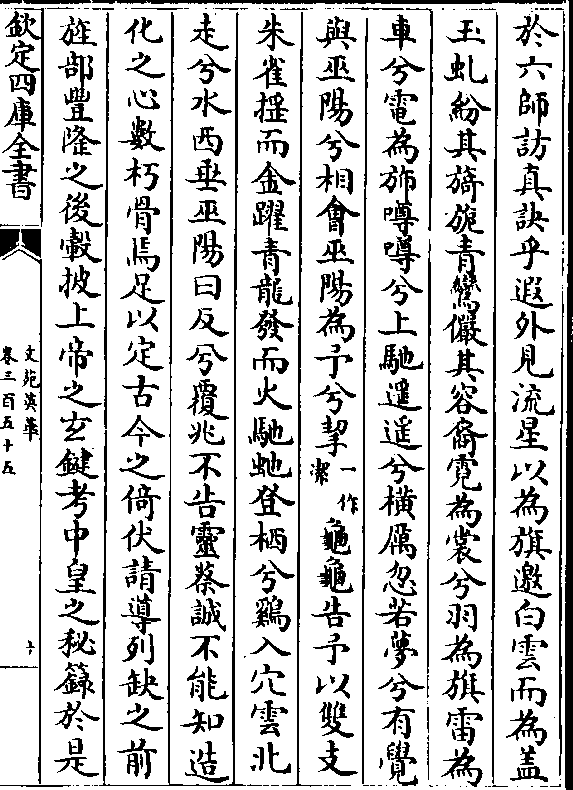 於六師訪真訣乎遐外見流星以為旗邀白雲而為蓋
玉虬紛其旖旎青鸞儼其容裔霓為裳兮羽為旗雷為
車兮電為斾噂噂兮上馳遥遥兮橫厲忽若夢兮有覺
與巫陽兮相㑹巫陽為予兮挈一作潔龜龜告予以雙支
朱雀揺而金躍青龍發而火馳虵登栖兮鷄入穴雲北
走兮水西垂巫陽曰反兮覆兆不告靈蔡誠不能知造
化之心數朽骨焉足以定古今之倚伏請導列缺之前
旌部豐隆之後轂披上帝之玄鍵考中皇之秘籙於是
欽定四庫全書
文苑英華
卷三百五十五